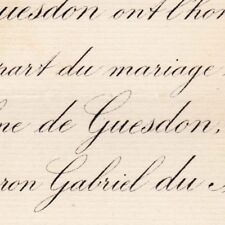 uesdon ont l'hon
part du mariage
me de Guesdon,
ron Gabriel du